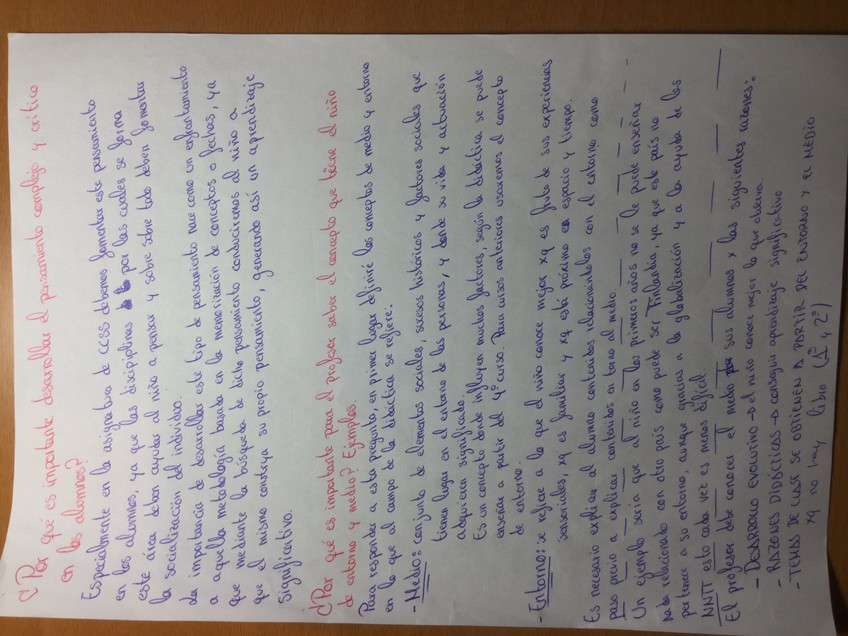 ¿Por qué es importante desarrollar el pensamiento complejo y crítico
en los alumnos?
Especialmente en la asignatura de CCSS debemos fomentar este pensamiento
en los alumnos, ya que las disciplinas por las cuales se forma
este área deben ayudar al niño a pensar y sobre sobre todo deben fomentar
la socialización del individuo.
La importancia de desarrollar este tipo de pensamiento nace como un enfrentamiento
a aquella metodología basada en la memorización de conceptos o fechas, ya
que mediante la búsqueda de dicho pensamiento conducimos al niño a
que él mismo construya su propio pensamiento, generando así un aprendizaje
significativo.
¿Por qué es importante para el profesor saber el concepto que tiene el niño
de entorno y medio? Ejemplos.
Para responder a esta pregunta, en primer lugar definiré los conceptos de medio y entorno
en lo que al campo de la didáctica se refiere:
- Medio: conjunto de elementos sociales, sucesos históricos y factores sociales que
tienen lugar en el entorno de las personas, y donde su vida y actuación
adquieren significado.
Es un concepto donde influyen muchos factores, según la didáctica se puede
enseñar a partir del 4º curso. Para cursos anteriores usaremos el concepto
de entorno.
- Entorno: se refiere a lo que el niño conoce mejor xq es fruto de sus experiencias
sensoriales, xq es familiar y xq está próximo en espacio y tiempo.
Es necesario explicar al alumno contenidos relacionándolos con el entorno como
paso previo a explicar contenidos en torno al medio.
Un ejemplo sería que al niño en los primeros años no se le puede enseñar
nada relacionado con otro país como puede ser Finlandia, ya que este país no
pertenece a su entorno, aunque gracias a la globalización y a la ayuda de las
NNTT esto cada vez es menos difícil.
El profesor debe conocer el medio sus alumnos x las siguientes razones:
- DESARROLLO EVOLUTIVO → el niño conoce mejor lo que observa.
- RAZONES DIDÁCTICAS → conseguir aprendizaje significativo
- TEMAS DE CLASE SE OBTIENEN A PARTIR DEL ENTORNO Y EL MEDIO
xq no hay libro (1º y 2º)